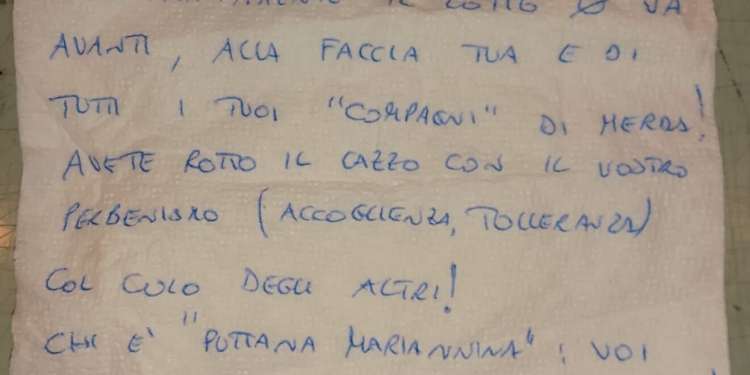 VA
AVANTI, ALLA FACCIA TUA E DI
TUTTI I TUOI "COMPAGNI" DI MERDA!
AVETE ROTTO IL CAZZO CON IL VOSTRO
PERBENISMO (ACCOGLIENZA, TOLLERANZA)
COL CULO DEGLI ALTRI!
CHI È "PUTTANA MARIANNINA": VOI